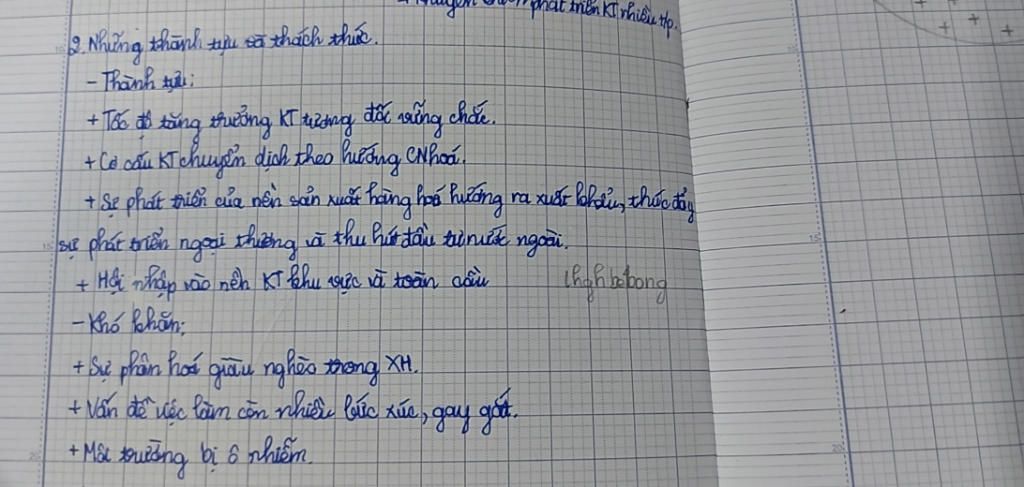 phát triển KT nhiều tp.
2. Những thành tựu và thách thức.
- Thành tựu:
+ Tốc độ tăng trưởng KT tương đối vững chắc.
+ Cơ cấu KT chuyển dịch theo hướng CN hoá.
+ Sự phát triển của nền sản xuất hàng hoá hướng ra xuất khẩu, thúc đẩy
sự phát triển ngoại thương và thu hút đầu tư nước ngoài.
+ Hội nhập vào nền KT khu vực và toàn cầu
- Khó khăn:
+ Sự phân hoá giàu nghèo trong XH.
+ Vấn đề việc làm còn nhiều bức xúc, gay gắt.
+ Môi trường bị ô nhiễm.